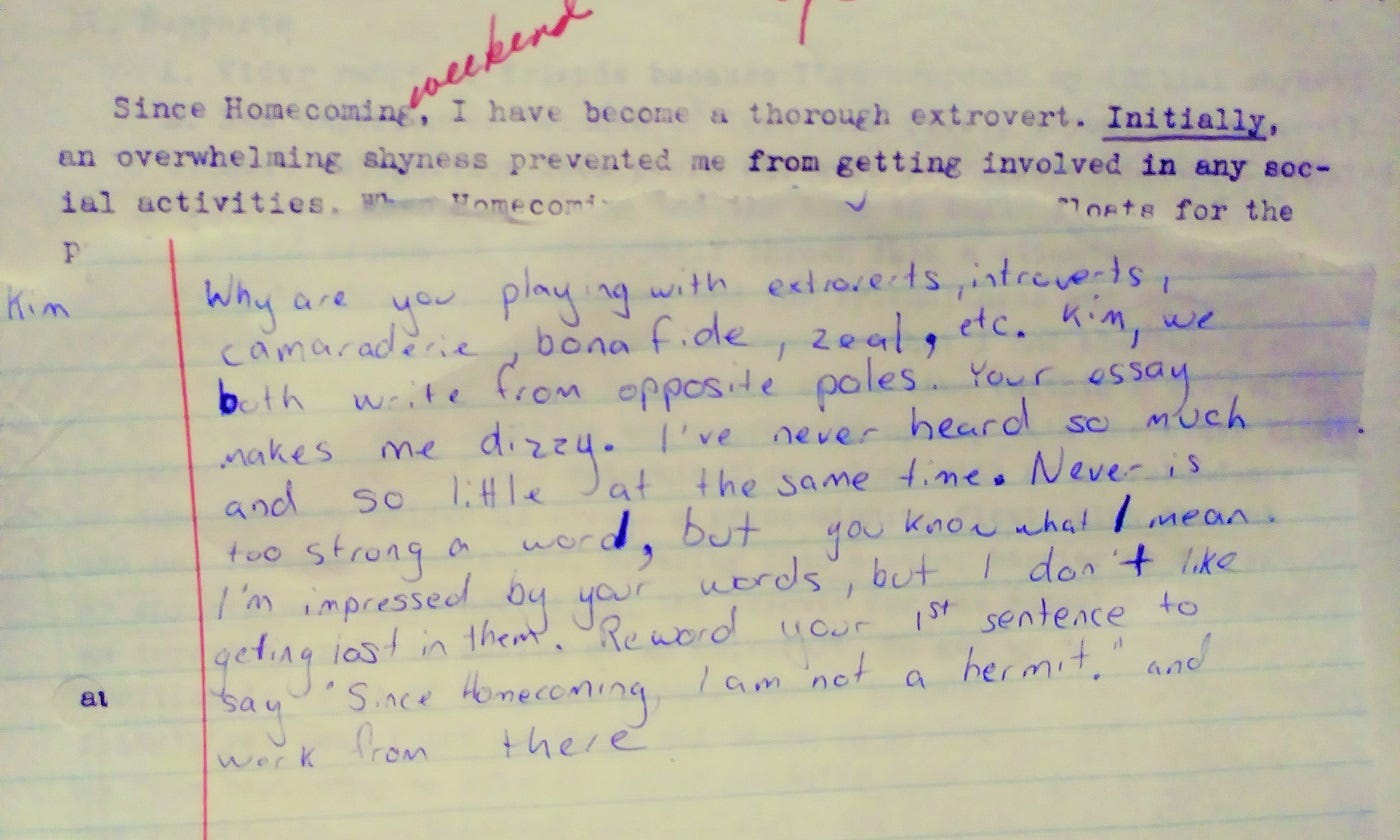 weekend
Since Homecoming, I have become a thorough extrovert. Initially,
an overwhelming shyness prevented me from getting involved in any soc-
ial activities. Homecomi for the
p
Kim
Why are you playing with extroverts, introverts,
camaraderie, bona fide, zeal, etc. Kim, we
both write from opposite poles. Your essay
makes me dizzy. I've never heard so much
and so little at the same time. Never is
too strong a word, but you know what I mean.
I'm impressed by your words, but I don't like
geting lost in them. Reword your 1st sentence to
say "Since Homecoming, I am not a hermit." and
work from there
al